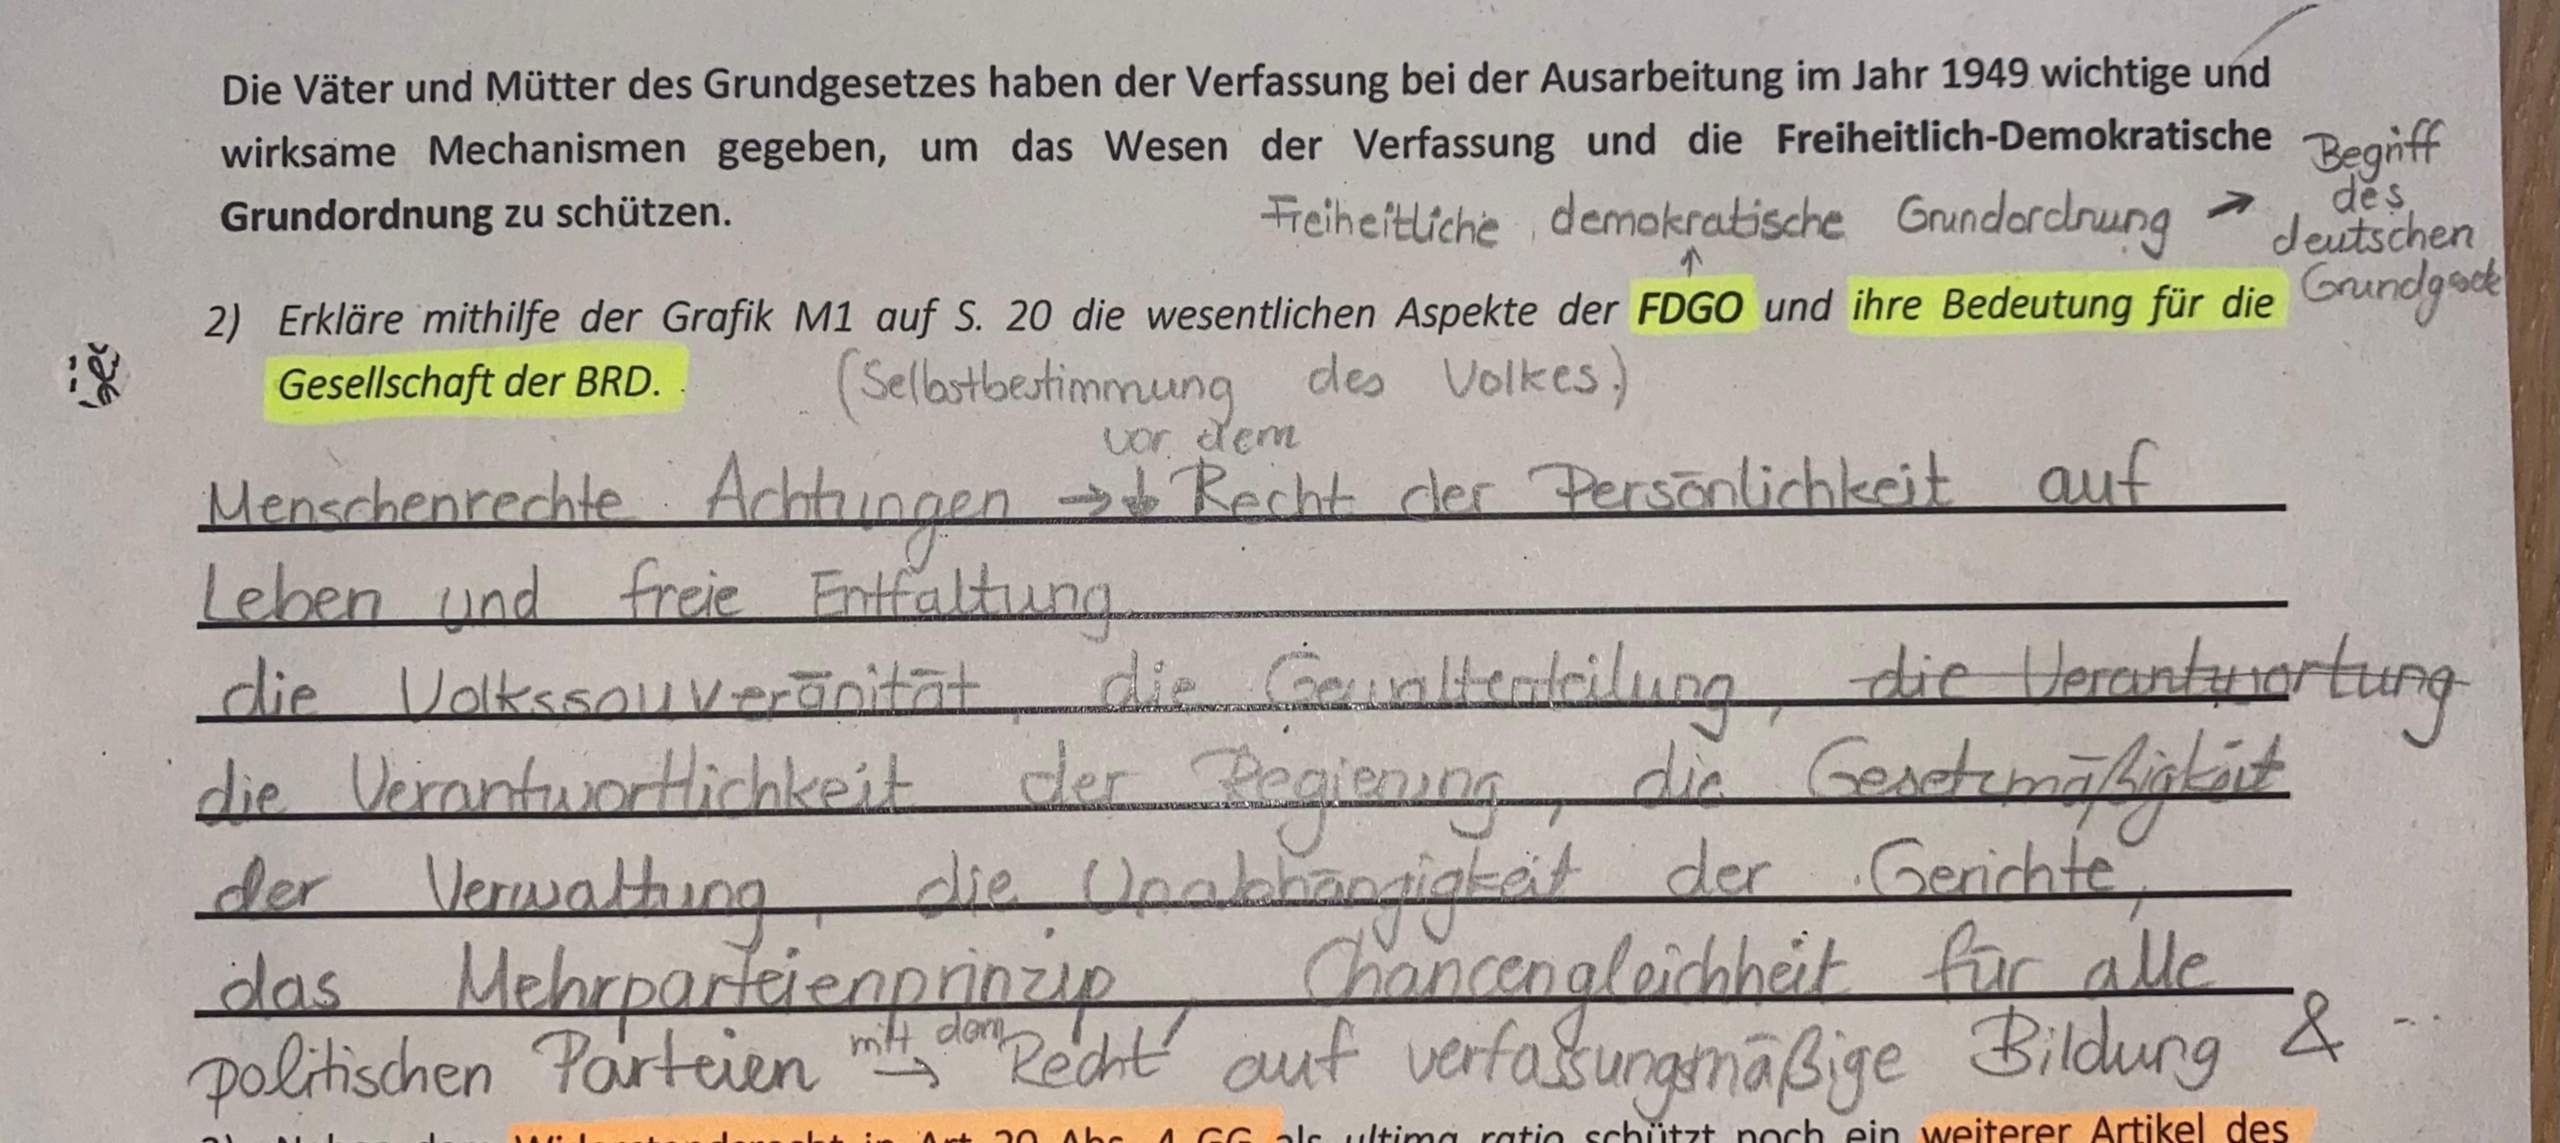 Die Väter und Mütter des Grundgesetzes haben der Verfassung bei der Ausarbeitung im Jahr 1949 wichtige und
wirksame Mechanismen gegeben, um das Wesen der Verfassung und die Freiheitlich-Demokratische
Grundordnung zu schützen.
Freiheitliche demokratische Grundordnung → Begriff
des
deutschen
2) Erkläre mithilfe der Grafik M1 auf S. 20 die wesentlichen Aspekte der FDGO und ihre Bedeutung für die
Gesellschaft der BRD.
(Selbstbestimmung des Volkes.)
vor dem
Menschenrechte Achtungen → Recht der Persönlichkeit auf
Leben und freie Entfaltung
die Volkssouveränität, die Gewaltenteilung, die Verantwortung
die Verantwortlichkeit der Regierung, die Gesetzmäßigkeit
der Verwaltung, die Unabhängigkeit der Gerichte,
das Mehrparteienprinzip, Chancengleichheit für alle
politischen Parteien mit dem → Recht auf verfassungsmäßige Bildung & ...
Widerstandsrecht in Art 20 Abs. 4 GG als ultima ratio schützt noch ein weiterer Artikel des